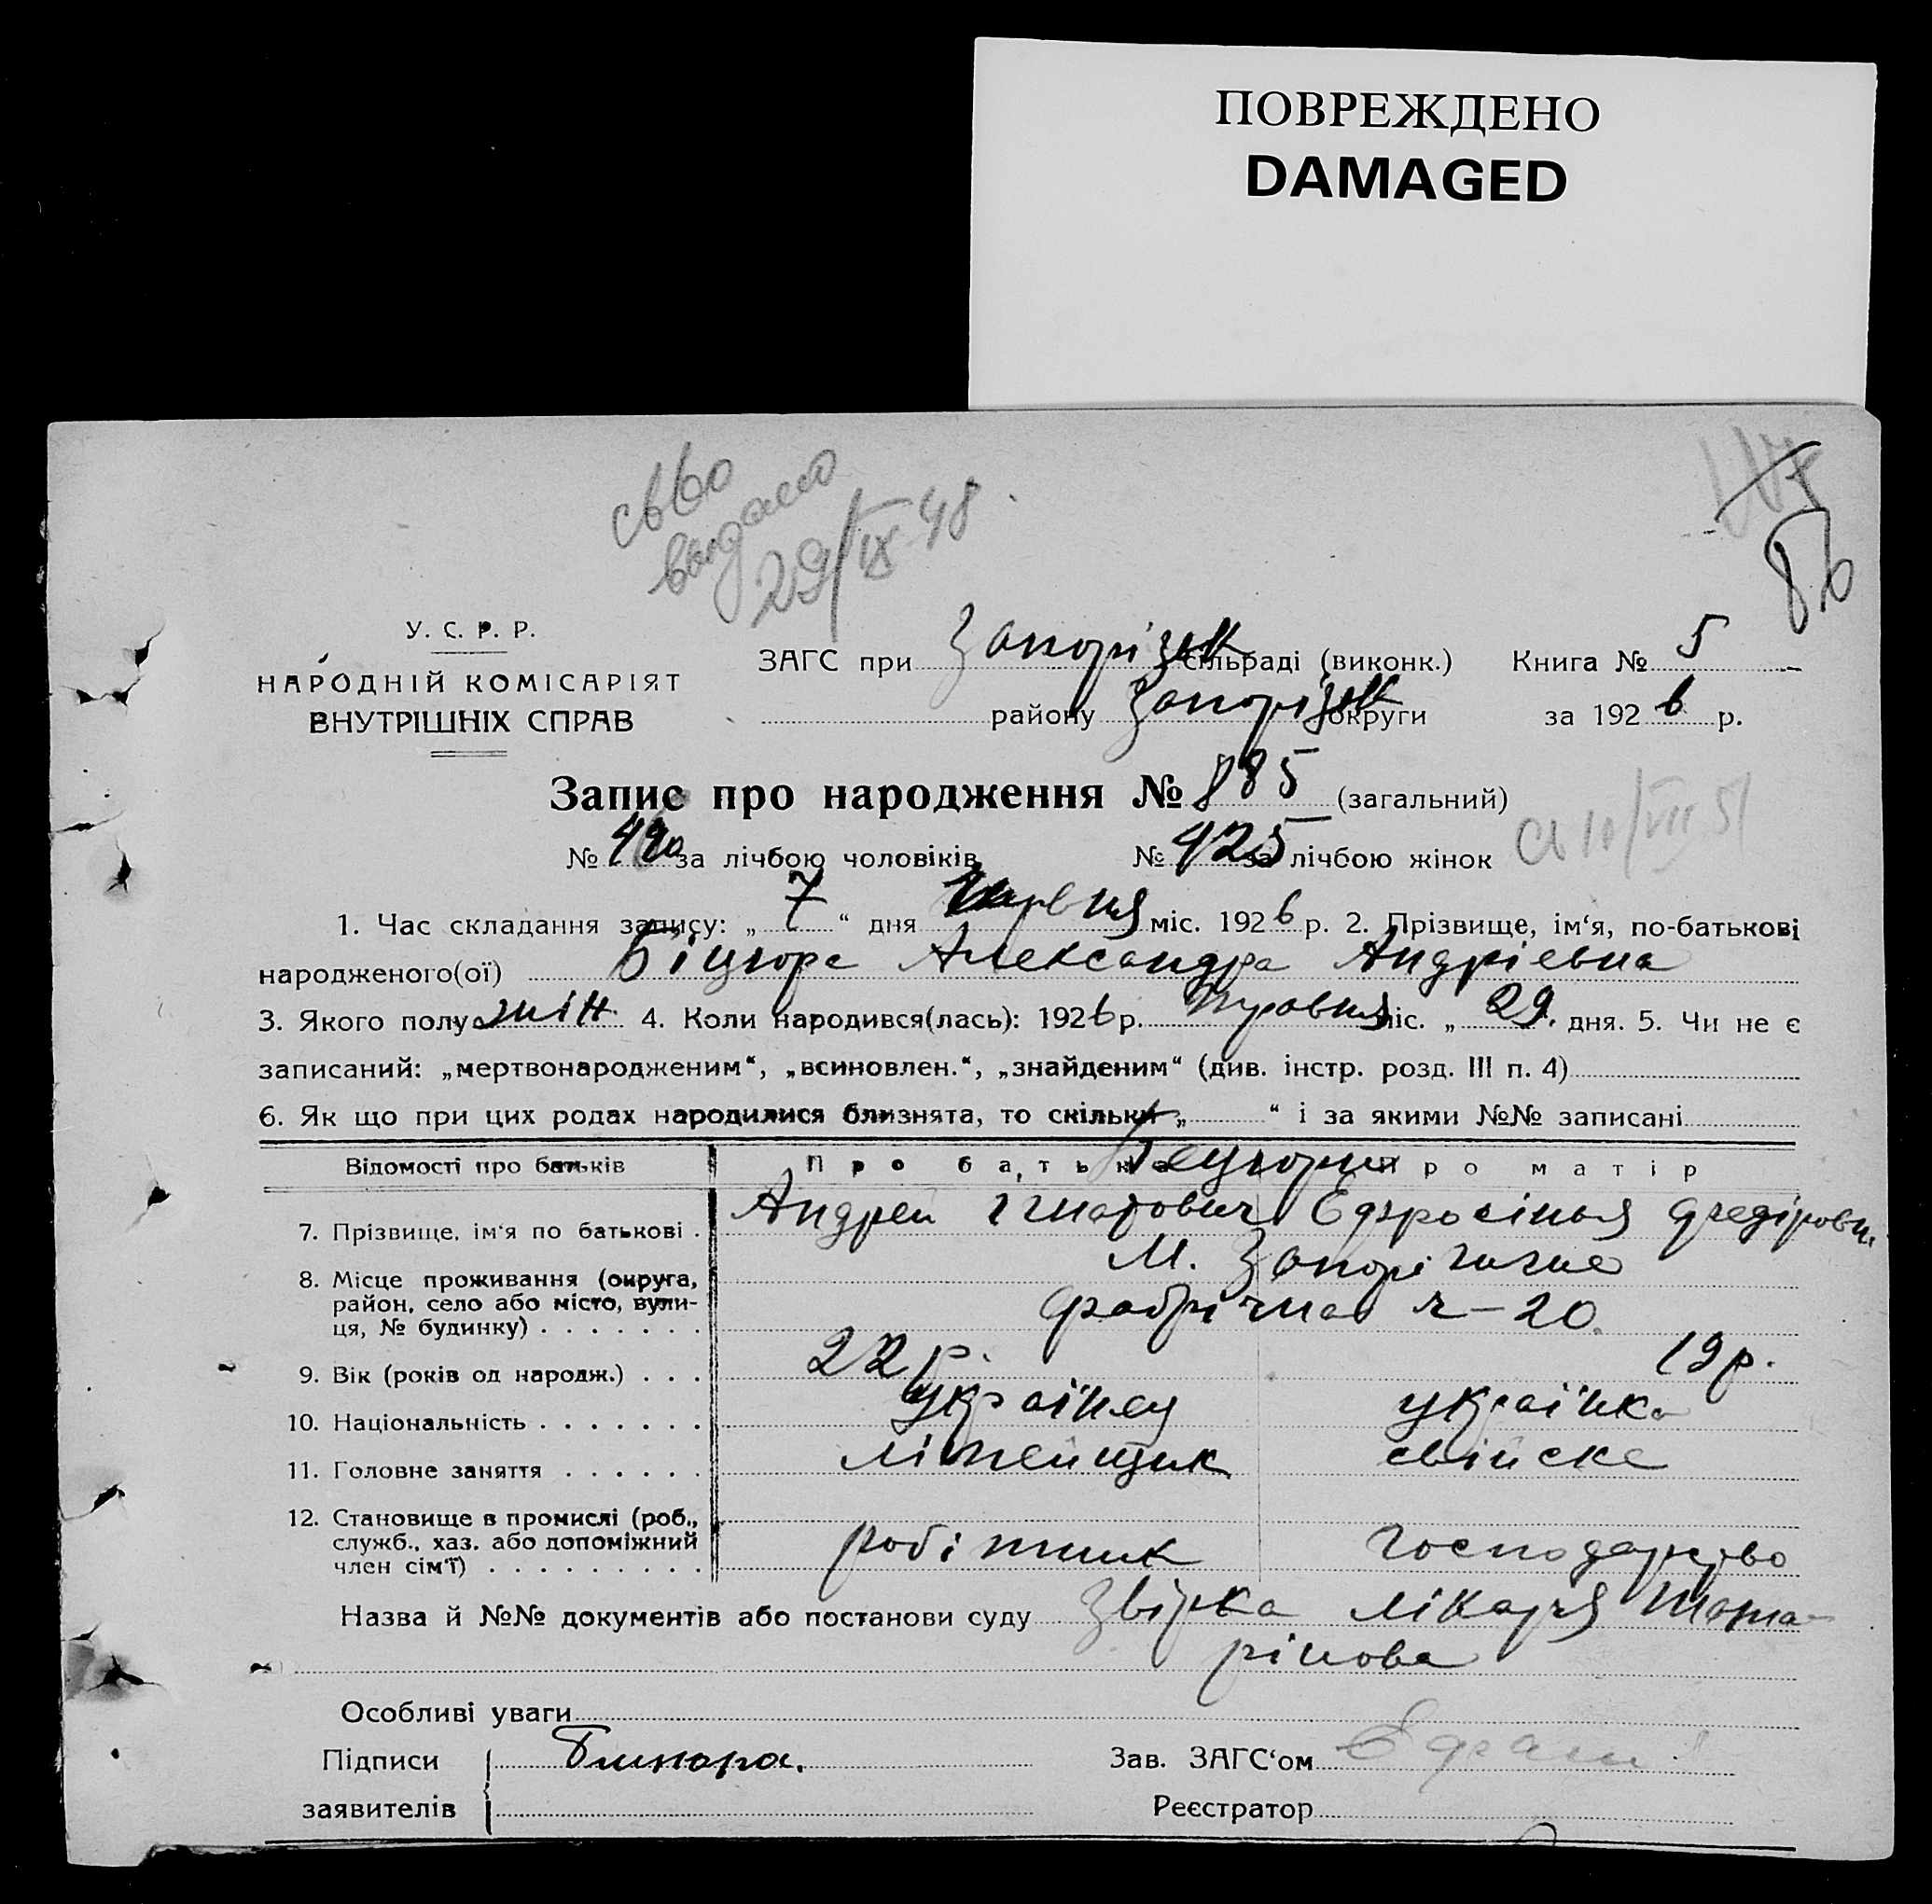 ПОВРЕЖДЕНО
DAMAGED
св-во
выдано
29/IX 48
86
У. С. Р. Р.
НАРОДНІЙ КОМІСАРІЯТ
ВНУТРІШНІХ СПРАВ
ЗАГС при Запорізьк сільраді (виконк.) Книга № 5
району Запорізьк округи за 1926 р.
Запис про народження № 885 (загальний)
№ за лічбою чоловіків № 425 за лічбою жінок
1. Час складання запису: „ 7 “ дня Червня міс. 1926 р. 2. Прізвище, ім‘я, по-батькові
народженого(ої) Біцюра Александра Андріевна
3. Якого полу жін. 4. Коли народився(лась): 1926 р. травня міс. „ 29. дня. 5. Чи не є
записаний: „мертвонародженим“, „всиновлен.“, „знайденим“ (див. інстр. розд. III п. 4)
6. Як що при цих родах народилися близнята, то скільки „ “ і за якими №№ записані
Відомості про батьків Про батька Про матір
7. Прізвище, ім‘я по батькові . Андрей Ігнатович Ефросінья Федіровн.
8. Місце проживання (округа, М. Запоріжжє
район, село або місто, вули-
ця, № будинку) . . . . . . . Фабрічна 20.
9. Вік (років од народж.) . . . 22 р. 19 р.
10. Національність . . . . . . . українец українка
11. Головне заняття . . . . . . літейщик свійске
12. Становище в промислі (роб.,
служб., хаз. або допоміжний
член сім‘ї) . . . . . . . . . робітник господарство
Назва й №№ документів або постанови суду Звірка лікаря
Особливі уваги
Підписи Зав. ЗАГС‘ом
заявителів Реєстратор